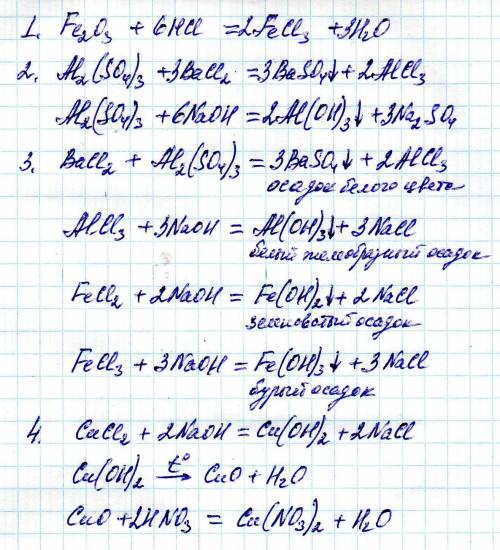 1. Fe₂O₃ + 6HCl = 2FeCl₃ + 3H₂O
2. Al₂(SO₄)₃ + 3BaCl₂ = 3BaSO₄↓ + 2AlCl₃
Al₂(SO₄)₃ + 6NaOH = 2Al(OH)₃↓ + 3Na₂SO₄
3. BaCl₂ + Al₂(SO₄)₃ = 3BaSO₄↓ + 2AlCl₃
осадок белого цвета
AlCl₃ + 3NaOH = Al(OH)₃↓ + 3NaCl
белый желеобразный осадок
FeCl₂ + 2NaOH = Fe(OH)₂↓ + 2NaCl
зеленоватый осадок
FeCl₃ + 3NaOH = Fe(OH)₃↓ + 3NaCl
бурый осадок
4. CuCl₂ + 2NaOH = Cu(OH)₂ + 2NaCl
Cu(OH)₂ t°→ CuO + H₂O
CuO + 2HNO₃ = Cu(NO₃)₂ + H₂O